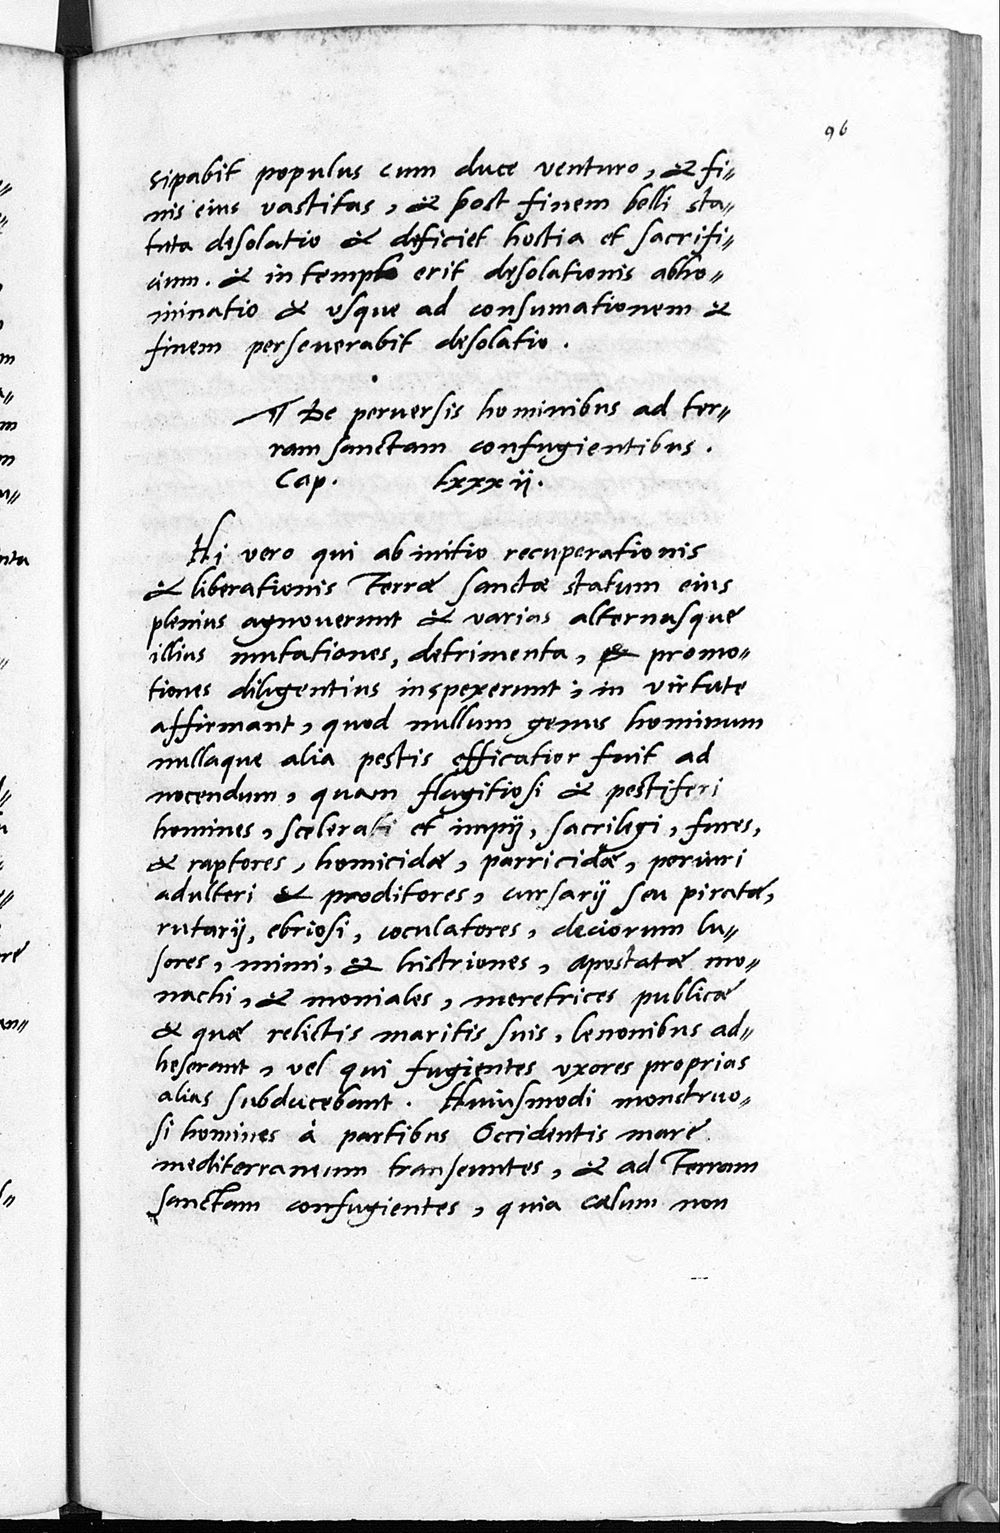 96
sipabit populus cum duce venturo, & fi=
nis eius vastitas, & post finem belli sta=
tuta desolatio & deficiet hostia et sacrifi=
cium. & in templo erit desolationis abho=
minatio & vsque ad consumationem &
finem perseuerabit desolatio.
¶ De peruersis hominibus ad ter=
ram sanctam confugientibus.
Cap. lxxxij.
Hi vero qui ab initio recuperationis
& liberationis Terræ sanctæ statum eius
plenius agnouerunt & varias alternasque
illius mutationes, detrimenta, & promo=
tiones diligentius inspexerunt; in virtute
affirmant, quod nullum genus hominum
nullaque alia pestis efficatior fuit ad
nocendum, quam flagitiosi & pestiferi
homines, scelerati et impij, sacrilegi, fures,
& raptores, homicidæ, parricidæ, periuri
adulteri & proditores, cursarij seu piratæ,
rutarij, ebriosi, coculatores, deciorum lu=
sores, mimi, & histriones, apostatæ mo=
nachi, & moniales, meretrices publicæ
& quæ relictis maritis suis, lenonibus ad=
heserant, vel qui fugientes vxores proprias
alias subducebant. Huiusmodi monstruo=
si homines à partibus Occidentis mare
mediterraneum transeuntes, & ad Terram
sanctam confugientes, quia cælum non